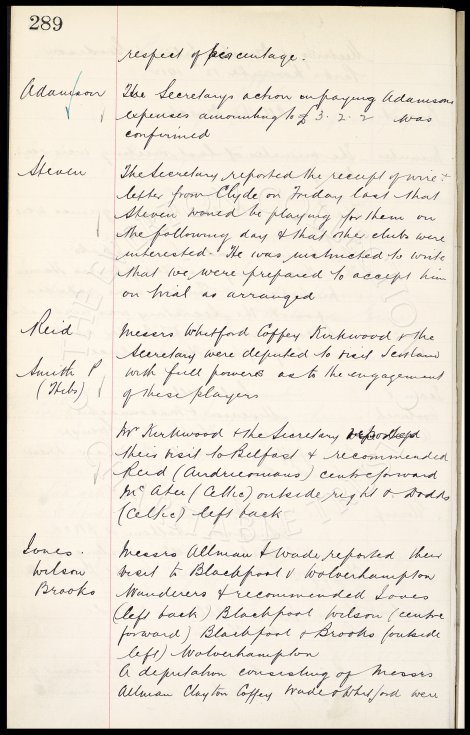 289
respect of percentage.
Adamson The Secretarys action in paying Adamsons
expenses amounting to £3.2.2 was
confirmed
Steven The Secretary reported the receipt of wire &
letter from Clyde on Friday last that
Steven would be playing for them on
the following day & that other clubs were
interested. He was instructed to write
that we were prepared to accept him
on trial as arranged
Reid Messrs Whitford Coffey Kirkwood & the
Secretary were deputed to visit Scotland
Smith P with full powers as to the engagement
(Hibs) of these players
Mr Kirkwood & the Secretary reported
their visit to Belfast & recommended
Reid (Airdrieonians) centre forward
Mc Ater (Celtic) outside right & Dodds
(Celtic) left back
Jones. Messrs Allman & Wade reported their
Wilson visit to Blackpool v Wolverhampton
Brooks Wanderers & recommended Jones
(left back) Blackpool Wilson (centre
forward) Blackpool & Brooks (outside
left) Wolverhampton
A deputation consisting of Messrs
Allman Clayton Coffey Wade & Whitford were